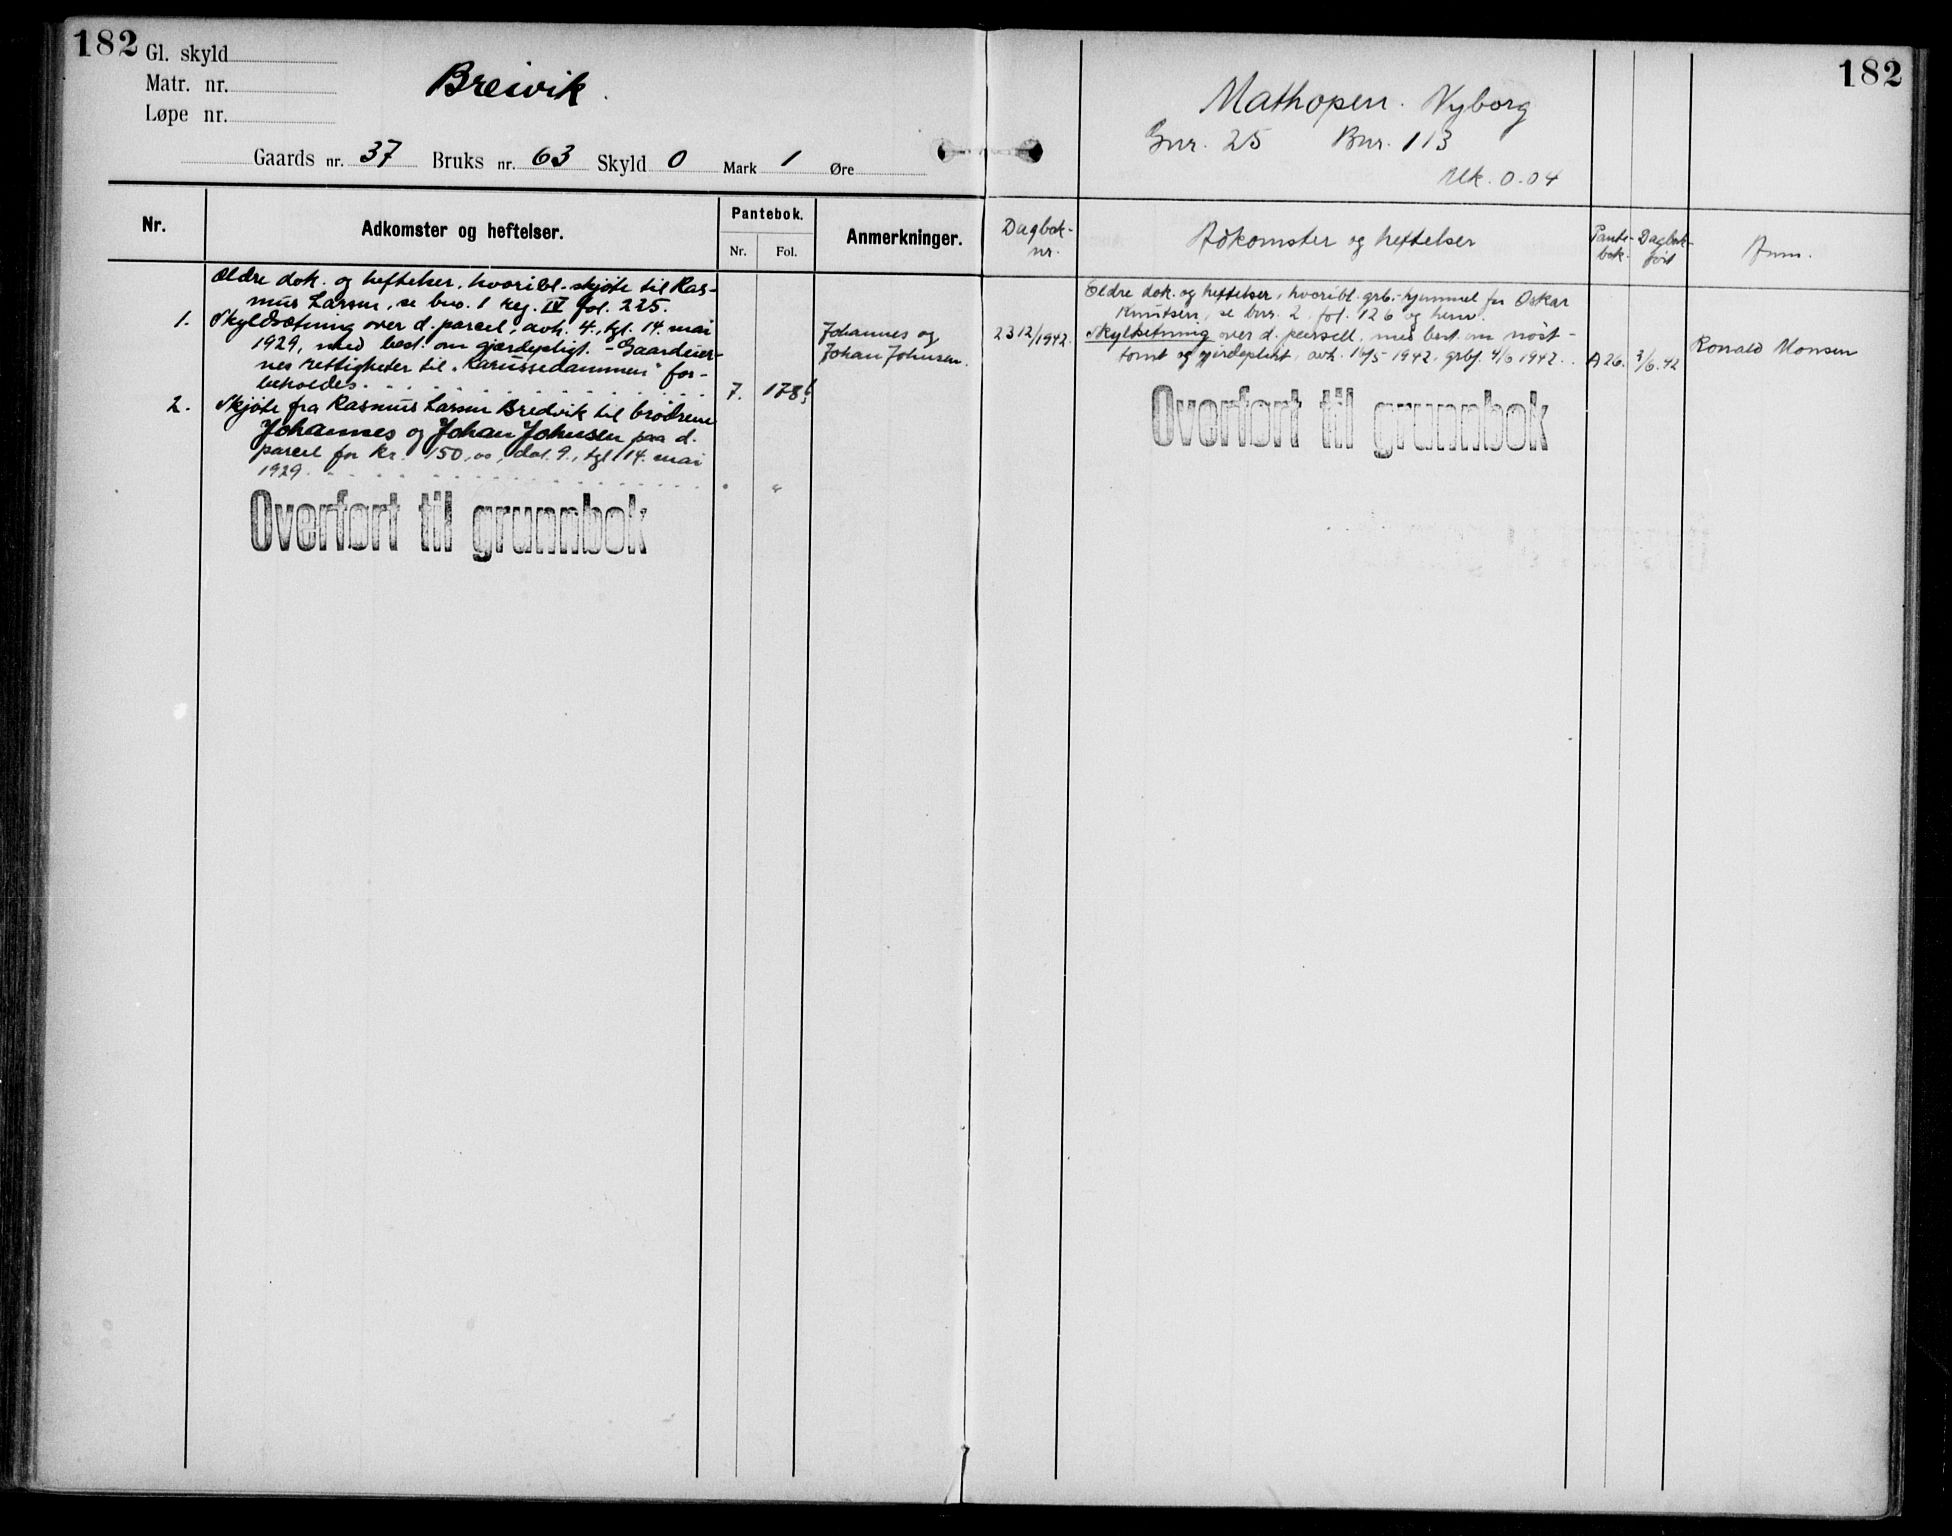 182
Gl. skyld
Matr. nr.
Løpe nr.
Breivik.
Gaards nr. 37 Bruks nr. 63 Skyld 0 Mark 1 Øre
Nr.
Adkomster og heftelser.
Pantebok.
Nr. Fol.
Anmerkninger.
Ældre dok. og heftelser, hvoribl. skjøte til Ras-
mus Larsen, se bno. 1 reg. IV fol. 225.
1. Skyldsætning over d. parcel, avh. 4., tgl. 14. mai
1929, med best. om gjærdepligt. - Gaardeier-
nes rettigheter til "Karussedammen" for-
beholdes. 7. 178b
Johannes og
Johan Johnsen.
2. Skjøte fra Rasmus Larsen Bredvik til brødrene
Johannes og Johan Johnsen paa d.
parcel for kr. 150,00, dat. 9., tgl. 14. mai
1929. " "
Overført til grunnbok
182
Mathopen. Nyborg
Gnr. 25 Bnr. 113
Mk. 0.04
Dagbok-
nr.
Adkomster og heftelser
Pante-
bok.
Dagbok-
ført
Anm.
Eldre dok. og heftelser, hvoribl. grb.-hjemmel for Oskar
Knutsen, se bnr. 2, fol. 126 og henv.
2312/1942 Skyldsetning over d. parsell, med best. om nøst-
tomt og gjerdeplikt, avh. 16/5 1942, grbf. 4/6 1942. A 26. 3/6.42
Ronald Monsen
Overført til grunnbok